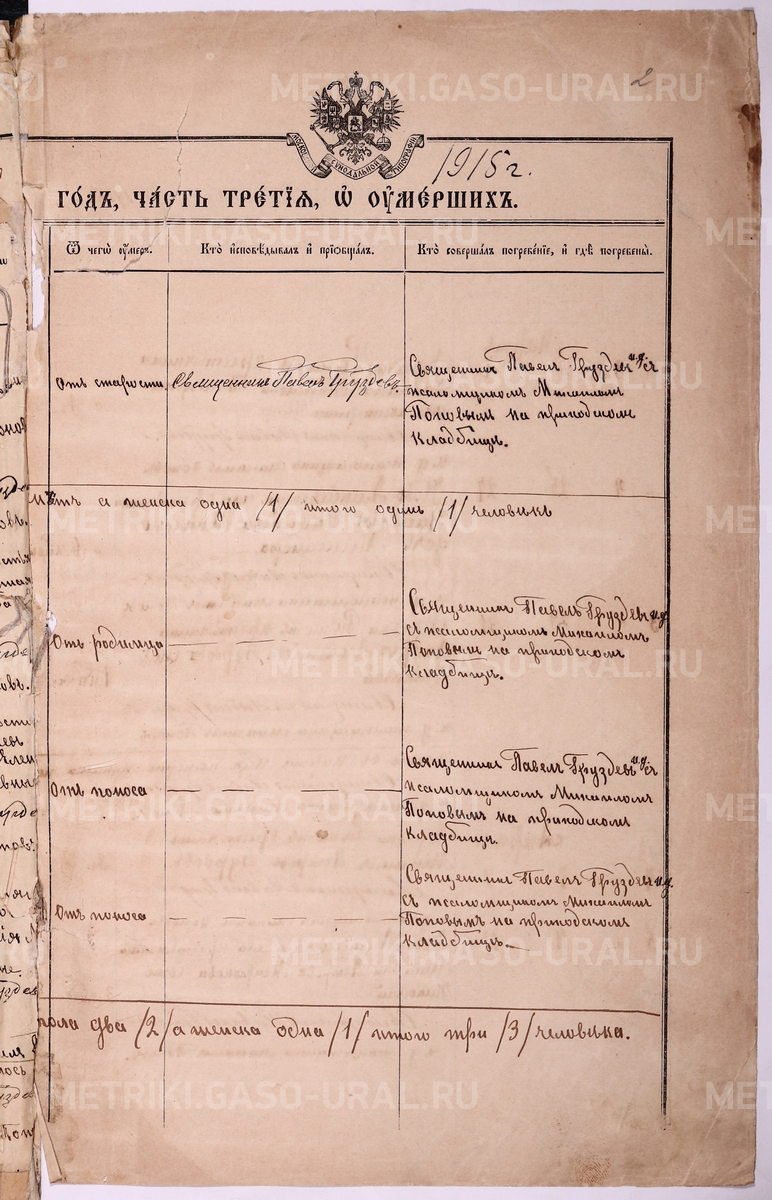 METRIKI.GASO-URAL.RU
2
МОСКОВ. СѴНОДАЛЬНОЙ ТИПОГРАФІИ
1915 г.
ГО́ДЪ, ЧА́СТЬ ТРЕ́ТІѦ, Ѡ҆ ОУ҆МЕ́РШИХЪ.
Ѿ чегѡ̀ оу҆́меръ.
Кто̀ и҆сповѣ́дывалъ и҆ прїѡбща́лъ.
Кто̀ соверша́лъ погребе́нїе, и҆ гдѣ̀ погребены̀.
Отъ старости
Священникъ Павелъ Груздевъ.
Священникъ Павелъ Груздевъ и.д. съ
псаломщикомъ Михаиломъ
Поповымъ на приходскомъ
кладбищѣ.
нѣтъ а женска одна /1/ итого одинъ /1/ человѣкъ
Отъ родимца
Священникъ Павелъ Груздевъ и.д.
съ псаломщикомъ Михаиломъ
Поповымъ на приходскомъ
кладбищѣ.
Отъ поноса
Священникъ Павелъ Груздевъ и.д. съ
псаломщикомъ Михаиломъ
Поповымъ на приходскомъ
кладбищѣ.
Отъ поноса
Священникъ Павелъ Груздевъ и.д.
съ псаломщикомъ Михаиломъ
Поповымъ на приходскомъ
кладбищѣ.
пола два /2/ а женска одна /1/ итого три /3/ человѣка.
METRIKI.GASO-URAL.RU